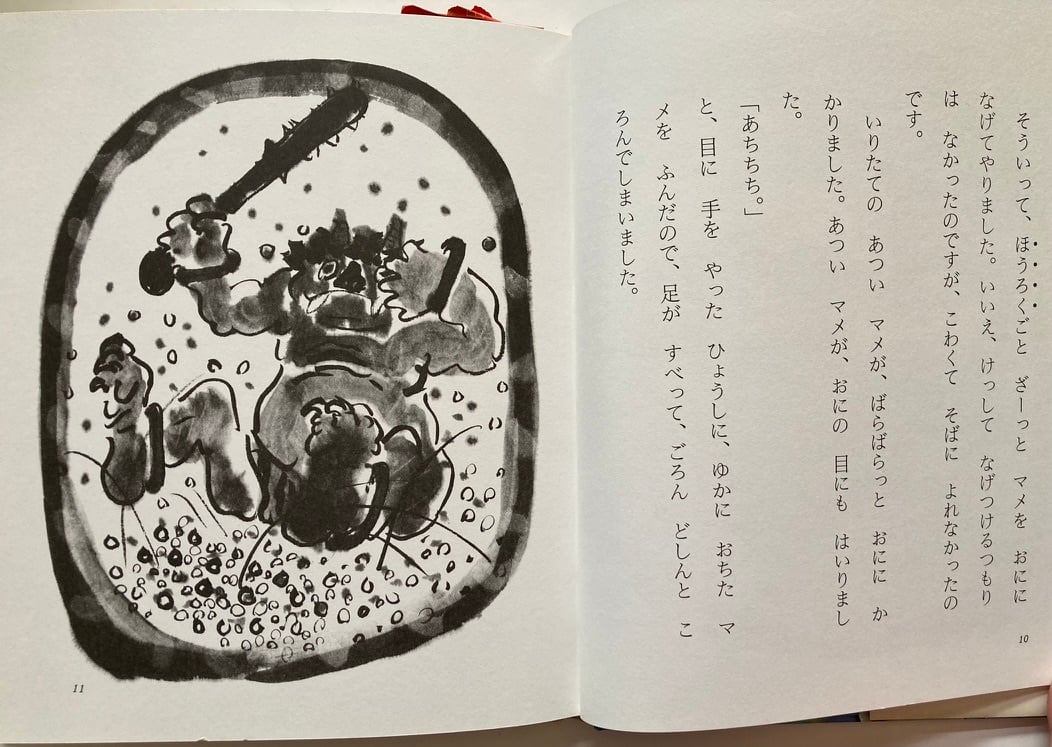 そういって、ほうろくごと　ざーっと　マメを　おにに
なげてやりました。いいえ、けっして　なげつけるつもり
は　なかったのですが、こわくて　そばに　よれなかったの
です。
　いりたての　あつい　マメが、ばらばらっと　おにに　か
かりました。あつい　マメが、おにの　目にも　はいりまし
た。
「あちちち。」
と、目に　手を　やった　ひょうしに、ゆかに　おちた　マ
メを　ふんだので、足が　すべって、ごろん　どしんと　こ
ろんでしまいました。
10
11